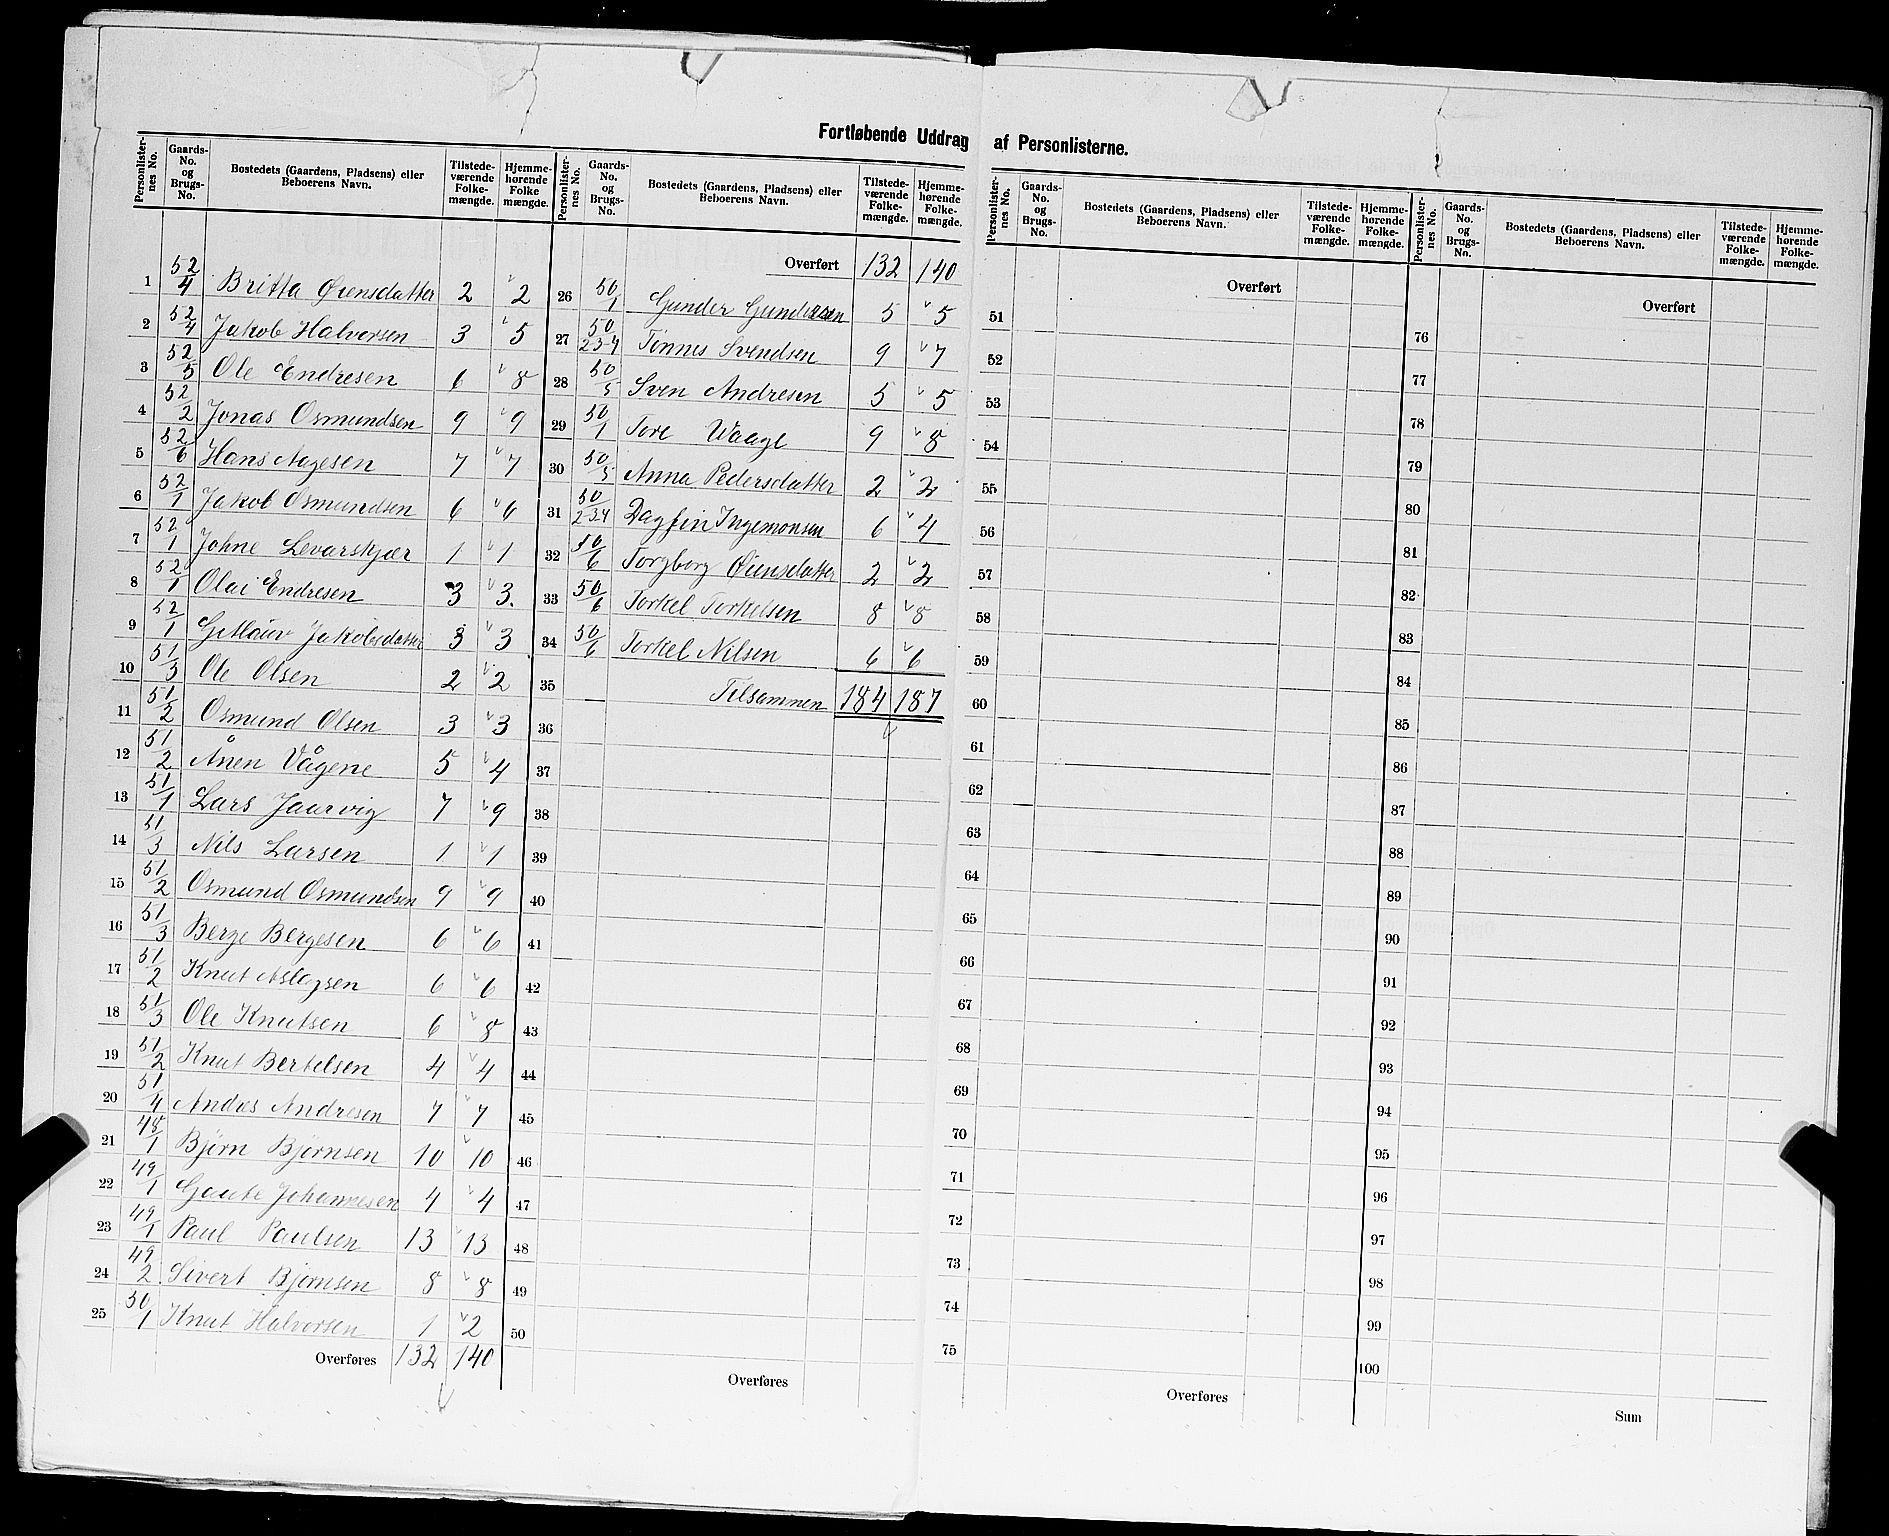 Fortløbende Uddrag af Personlisterne.
Personlister-nes No. | Gaards-No. og Brugs-No. | Bostedets (Gaardens, Pladsens) eller Beboerens Navn. | Tilstede-værende Folke-mængde. | Hjemme-hørende Folke mængde.
1 52/4 Britta Øiensdatter 2 2
2 52/4 Jakob Halvorsen 3 5
3 52/5 Ole Endresen 6 8
4 52/2 Jonas Osmundsen 9 9
5 52/6 Hans Aagesen 7 7
6 52/1 Jakob Osmundsen 6 6
7 52/1 Johne Levarskjær 1 1
8 52/1 Olai Endresen 3 3.
9 52/1 Jakobsdatter 3 3
10 51/3 Ole Olsen 2 2
11 51/2 Osmund Olsen 3 3
12 51/2 Ånen Vågene 5 4
13 51/1 Lars Jaarvig 7 9
14 51/3 Nils Larsen 1 1
15 51/2 Osmund Osmundsen 9 9
16 51/3 Berge Bergesen 6 6
17 51/2 Knut Aslagsen 6 6
18 51/3 Ole Knutsen 6 8
19 51/2 Knut Bertelsen 4 4
20 51/4 Andres Andresen 7 7
21 48/1 Bjørn Bjørnsen 10 10
22 49/1 Gaute Johannesen 4 4
23 49/1 Paul Paulsen 13 13
24 49/2 Sivert Bjørnsen 8 8
25 50/1 Knut Halvorsen 1 2
Overføres 132 140
Personlister-nes No. | Gaards-No. og Brugs-No. | Bostedets (Gaardens, Pladsens) eller Beboerens Navn. | Tilstede-værende Folke-mængde. | Hjemme-hørende Folke-mængde.
Overført 132 140
26 50/1 Gunder Gundersen 5 5
27 50/234 Tønnes Svendsen 9 7
28 50/5 Sven Andresen 5 5
29 50/1 Tore Waage 9 8
30 50/5 Anna Pedersdatter 2 2
31 50/234 Dagfin Ingemonsen 6 4
32 50/6 Torgborg Øiensdatter 2 2
33 50/6 Torkel Torkelsen 8 8
34 50/6 Torkel Nilsen 6 6
35 Tilsammen 184 187
36
37
38
39
40
41
42
43
44
45
46
47
48
49
50
Overføres
Personlister-nes No. | Gaards-No. og Brugs-No. | Bostedets (Gaardens, Pladsens) eller Beboerens Navn. | Tilstede-værende Folke-mængde. | Hjemme-hørende Folke-mængde.
Overført
51
52
53
54
55
56
57
58
59
60
61
62
63
64
65
66
67
68
69
70
71
72
73
74
75
Overføres
Personlister-nes No. | Gaards-No. og Brugs-No. | Bostedets (Gaardens, Pladsens) eller Beboerens Navn. | Tilstede-værende Folke-mængde. | Hjemme-hørende Folke-mængde.
Overført
76
77
78
79
80
81
82
83
84
85
86
87
88
89
90
91
92
93
94
95
96
97
98
99
100
Sum